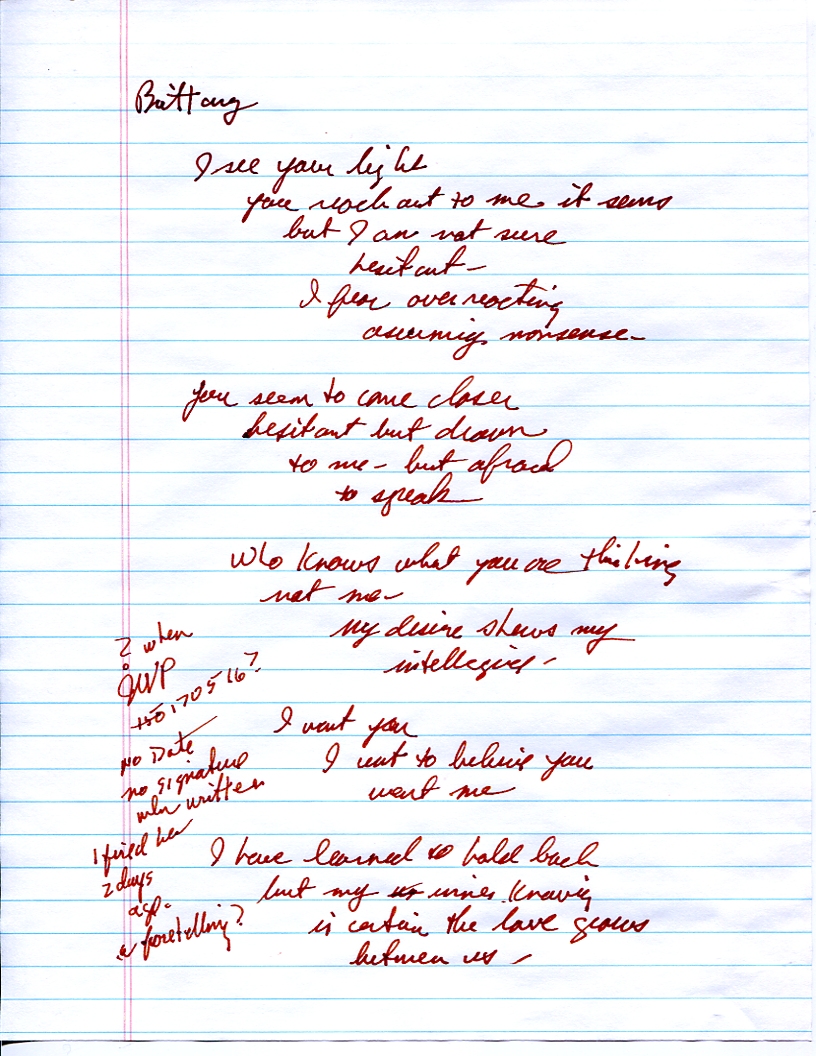 Brittany
I see your light
you reach out to me it seems
but I am not sure
hesitant -
I fear overreacting
assuming nonsense -
you seem to come closer
hesitant but drawn
to me - but afraid
to speak
who knows what you are thinking
not me -
my desire shows my
I want you
I want to believe you
want me
I have learned to hold back
but my inner knowing
is certain the love grows
between us -
? when
JWP
no Date
no signature
when written
I fired her
2 days
ago -
a foretelling?